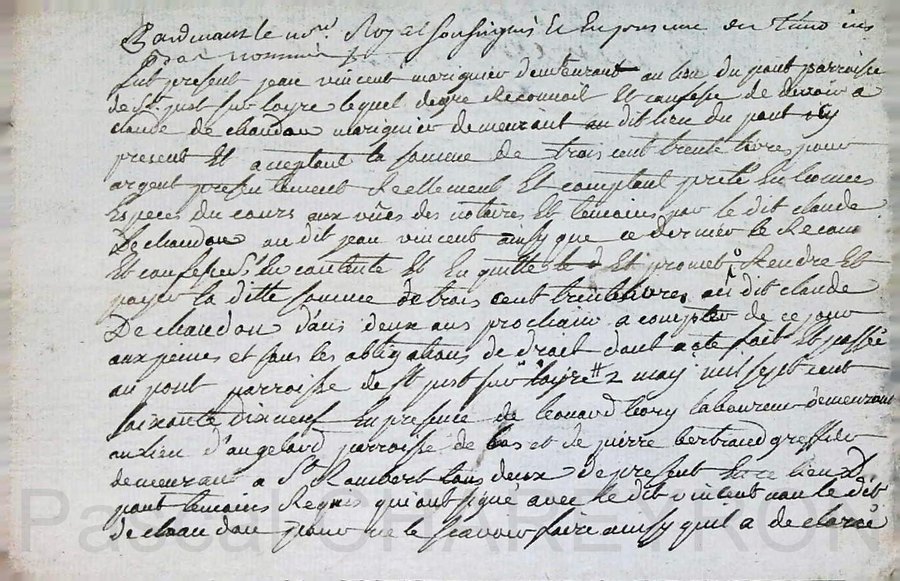 Pardevant le nore Royal soussigné et en presence des témoins
bas nommés
fut present jean vincent marignier demeurant au lieu du pont parroisse
de St just sur loyre lequel de gré Reconnoit et confesse de devoir a
claude de chandon marignier demeurant au dit lieu du pont icy
present et acceptant la somme de trois cent trente livres pour
argent presentement Reellement et comptant prêté en bonnes
Especes du cours aux vües des notaires et temoins par le dit claude
De chandon au dit jean vincent ainsy que ce dernier le Reconn
Et confesse s'en contente et en quitte Et promet Rendre et
payer la ditte somme de trois cent trente livres au dit claude
De chandon dans deux ans prochain a compter de ce jour
aux peines et sous les obligations de droit dont acte fait et passé
au pont parroisse de St just sur loyre 2 may mil sept cent
soixante dix neuf En presence de leonard laboureur demeurant
au lieu d'angelard parroisse de bas et de pierre bertrand greffier
demeurant a St Rambert tous deux de present en ce lieu du
pont temoins Requis qui ont signé avec le dit vincent non le dit
de chandon pour ne le scavoir faire ainsy qu'il a declaré
Pascal CHAREYRON